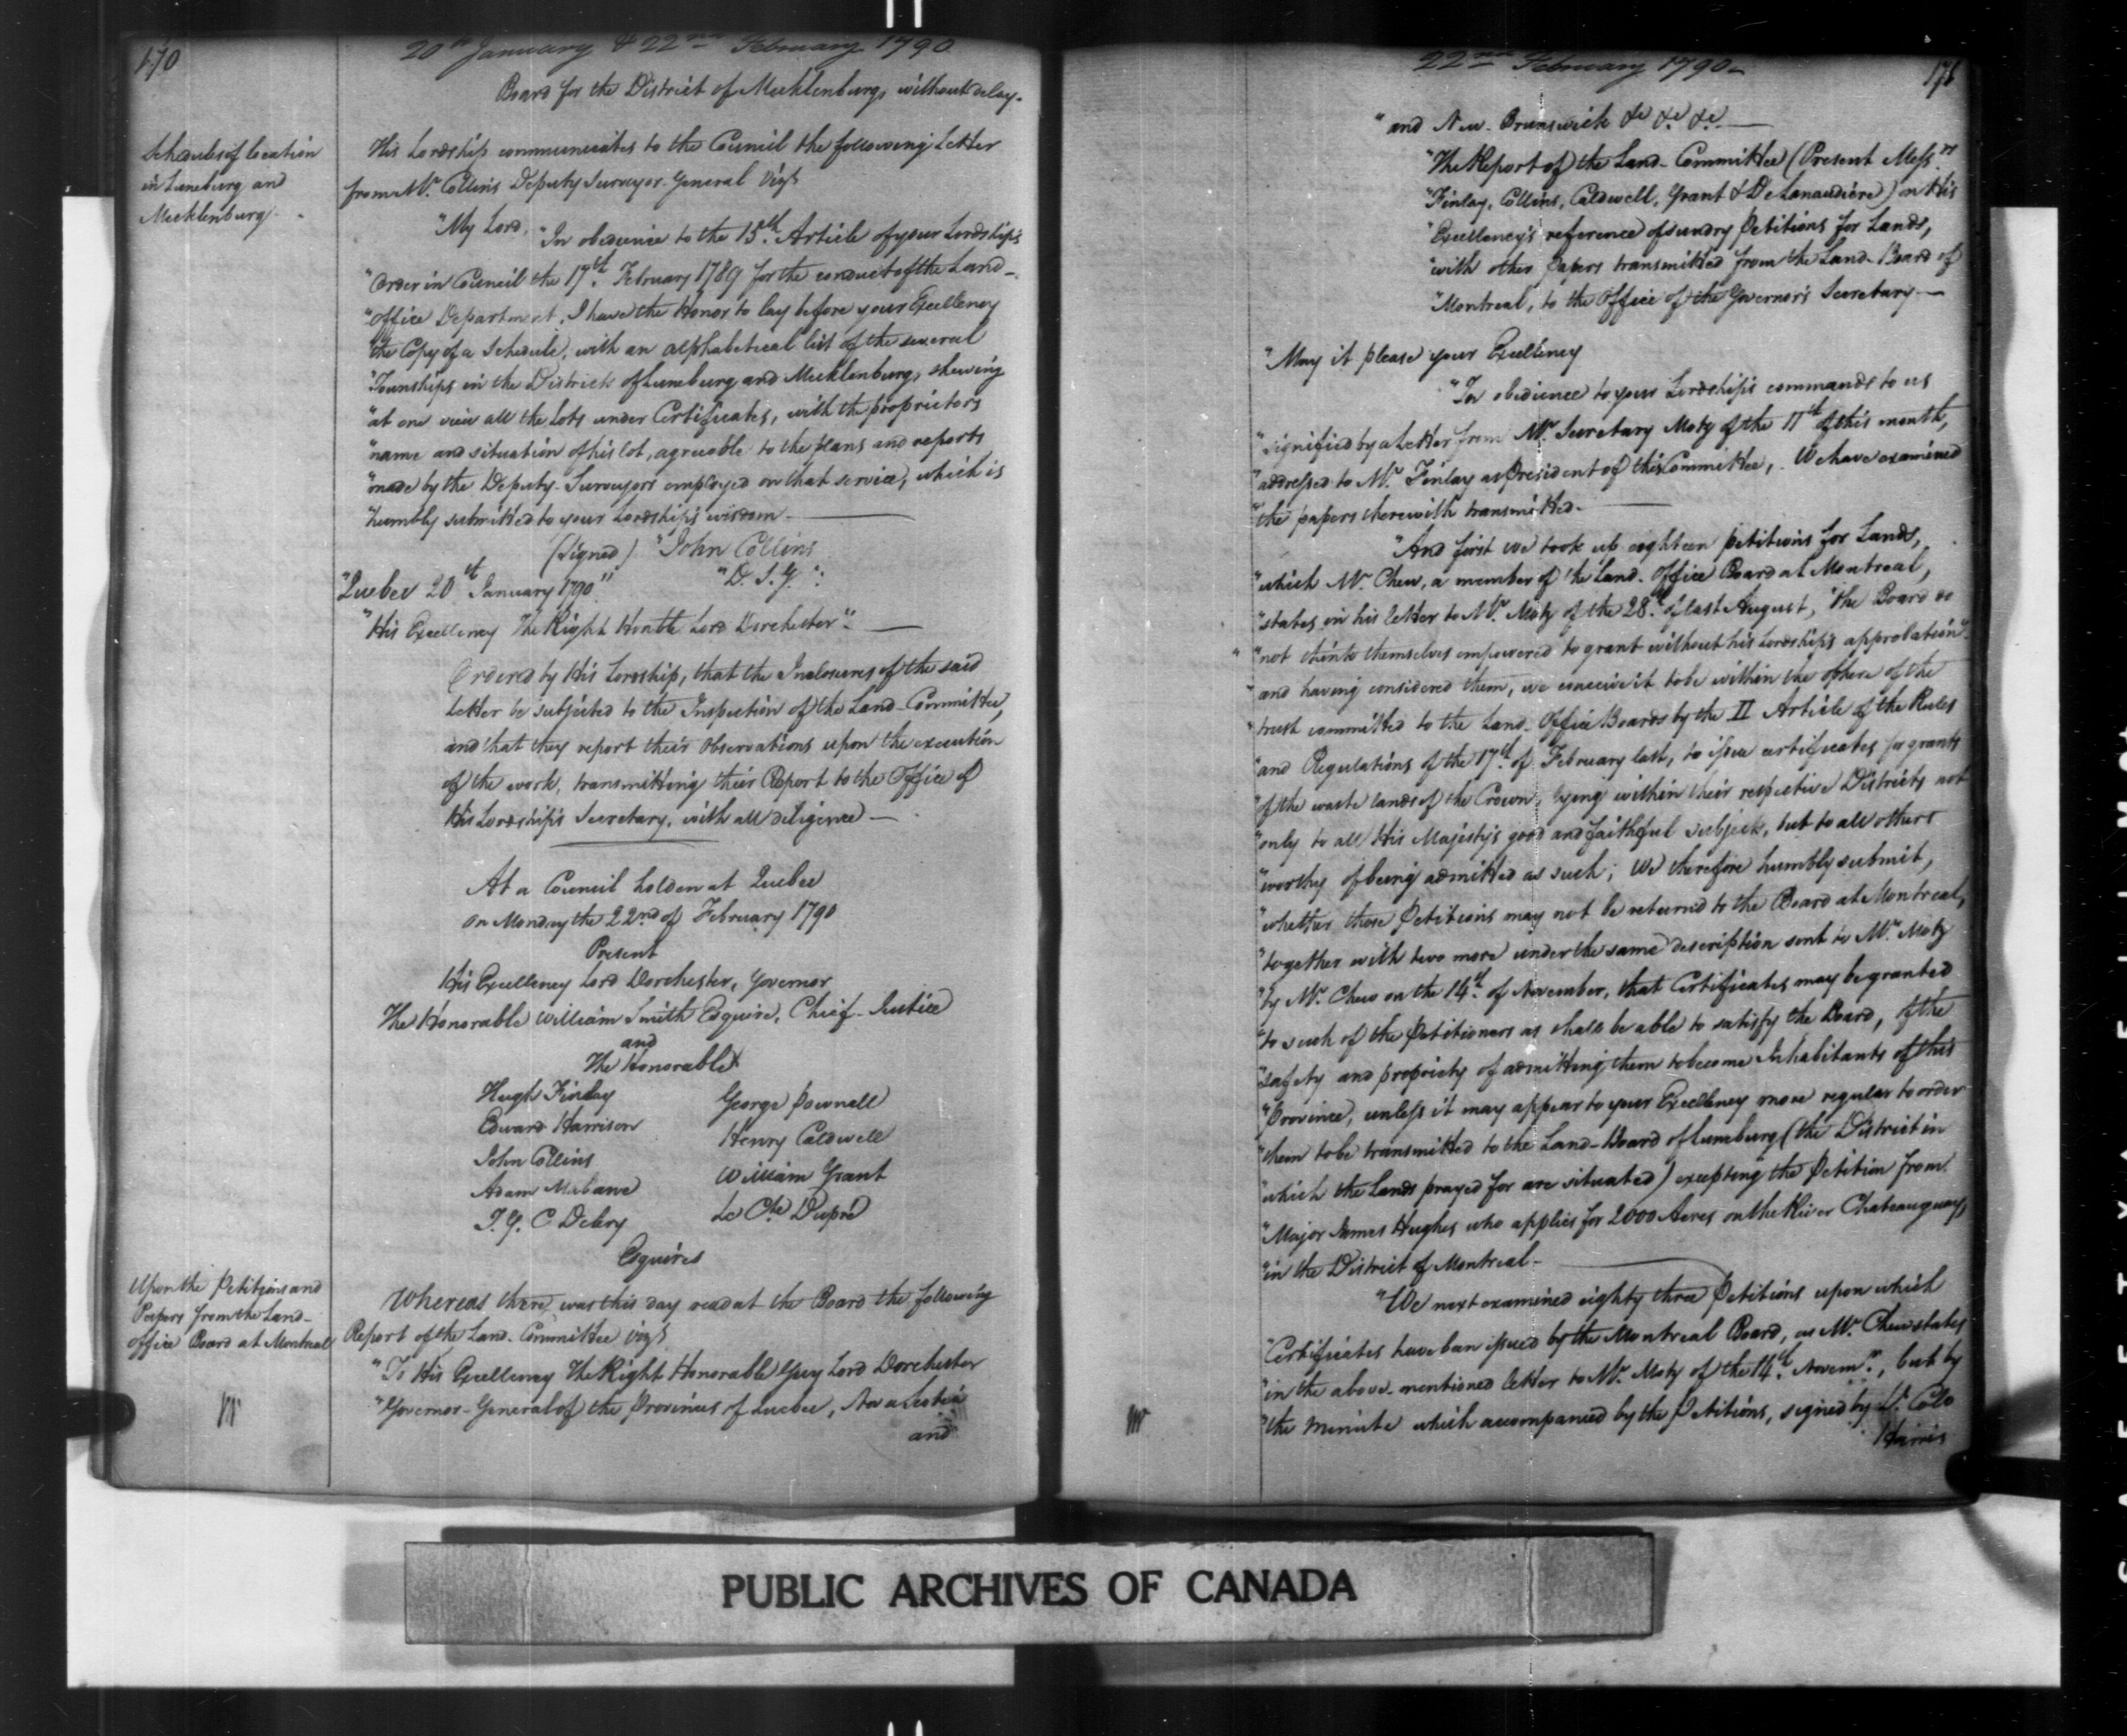 170
20th January & 22nd February 1790
Board for the District of Mecklenburg, without delay.
Schedules of location
in Luneburg and
Mecklenburg.
His Lordship communicates to the Council the following Letter
from Mr. Collins Deputy Surveyor General Vizt
"My Lord, "In obedience to the 15th. Article of your Lordship's
"Order in Council the 17th. February 1789 for the conduct of the Land-
"Office Department, I have the Honor to lay before your Excellency
"the Copy of a Schedule, with an alphabetical list of the several
"Townships in the Districts of Luneburg and Mecklenburg, shewing
"at one view all the Lots under Certificates, with the proprietors
"name and situation of his lot, agreeable to the plans and reports
"made by the Deputy-Surveyors employed on that service, which is
"humbly submitted to your Lordship's wisdom.
(Signed) "John Collins
"D. S. G.":
"Quebec 20th January 1790"
"His Excellency The Right Honble Lord Dorchester".
Ordered by His Lordship, that the Inclosures of the said
Letter be subjected to the Inspection of the Land-Committee,
and that they report their observations upon the execution
of the work, transmitting their Report to the Office of
His Lordship's Secretary, with all diligence
At a Council holden at Quebec
on Monday the 22nd of February 1790
Present
His Excellency Lord Dorchester, Governor
The Honorable William Smith Esquire, Chief-Justice
and
The Honorable
Hugh Finlay George Pownall
Edward Harrison Henry Caldwell
John Collins William Grant
Adam Mabane Le Cte Dupré
J. G. C. Delery
Esquires
Upon the Petitions and
Papers from the Land-
Office Board at Montreal
Whereas there was this day read at the Board the following
Report of the Land-Committee vizt
"To His Excellency The Right Honorable Guy Lord Dorchester
"Governor-General of the Provinces of Quebec, Nova Scotia
and
22nd February 1790
171
"and New-Brunswick &c &c &c
"The Report of the Land-Committee (Present Messrs
"Finlay, Collins, Caldwell, Grant & De Lanaudiere) on His
"Excellency's reference of sundry Petitions for Lands,
"with other Papers transmitted from the Land-Board of
"Montreal, to the Office of the Governor's Secretary
"May it please your Excellency
"In obedience to your Lordship's commands to us
"signified by a Letter from Mr. Secretary Motz of the 11th of this month,
"addressed to Mr. Finlay as President of this Committee, We have examined
"the papers therewith transmitted.
"And first we took up eighteen Petitions for Lands,
"which Mr. Chew, a member of the Land-Office Board at Montreal,
"states in his letter to Mr. Motz of the 28th of last August, "the Board do
" "not think themselves empowered to grant without his Lordship's approbation"
"and having considered them, we conceive it to be within the sphere of the
"trust committed to the Land-Office Boards by the II Article of the Rules
"and Regulations of the 17th. of February last, to issue certificates for grants
"of the waste lands of the Crown, lying within their respective Districts not
"only to all His Majesty's good and faithful subjects, but to all others
"worthy of being admitted as such; We therefore humbly submit,
"whether those Petitions may not be returned to the Board at Montreal,
"together with two more under the same description sent to Mr. Motz
"by Mr. Chew on the 14th. of November, that Certificates may be granted
"to such of the Petitioners as shall be able to satisfy the Board, of the
"safety and propriety of admitting them to become Inhabitants of this
"Province, unless it may appear to your Excellency more regular to order
"them to be transmitted to the Land-Board of Luneburg (the District in
"which the Lands prayed for are situated) excepting the Petition from
"Major James Hughes who applies for 2000 Acres on the River Chateauguay,
"in the District of Montreal.
"We next examined eighty three Petitions upon which
"Certificates have been issued by the Montreal Board, as Mr. Chew states
"in the above-mentioned letter to Mr. Motz of the 14th. Novemr., but by
"the Minute which accompanied by the Petitions, signed by Lt. Colo
Harris
PUBLIC ARCHIVES OF CANADA